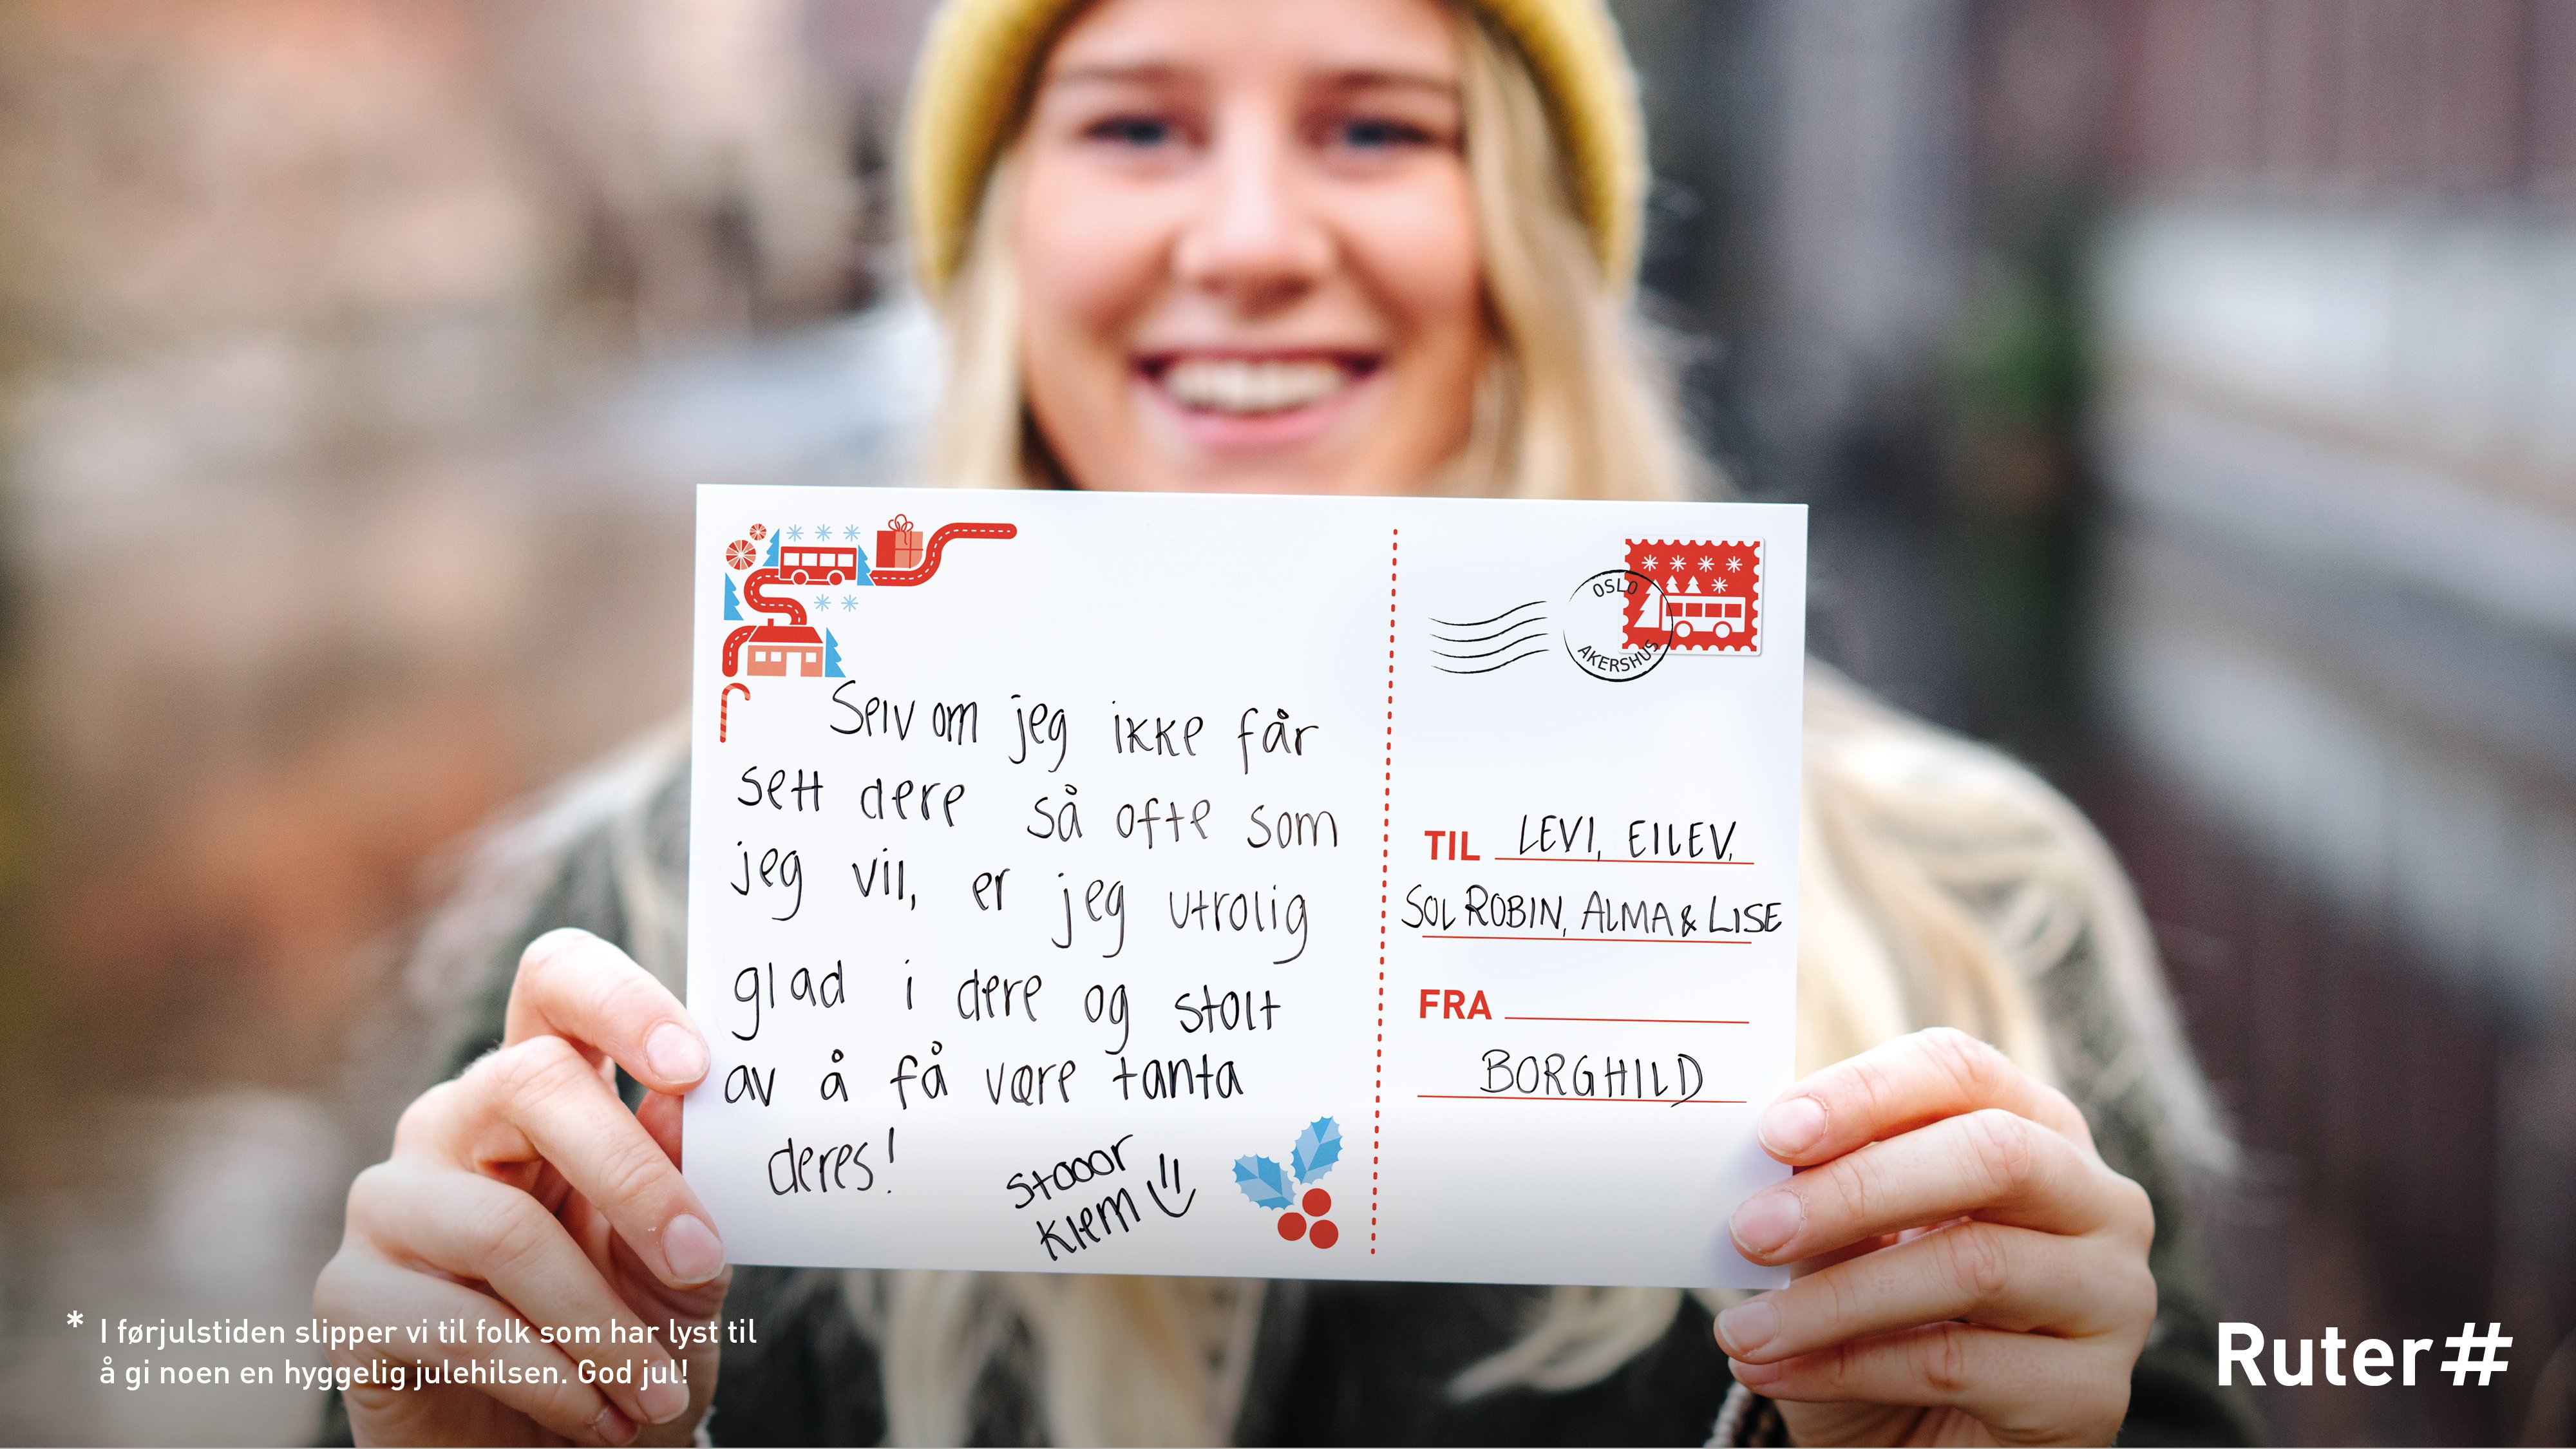 Selv om jeg ikke får
sett dere så ofte som
jeg vil, er jeg utrolig
glad i dere og stolt
av å få være tanta
deres!
Stooor
klem
OSLO
AKERSHUS
TIL LEVI, EILEV,
SOL ROBIN, ALMA & LISE
FRA
BORGHILD
* I førjulstiden slipper vi til folk som har lyst til
å gi noen en hyggelig julehilsen. God jul!
Ruter#